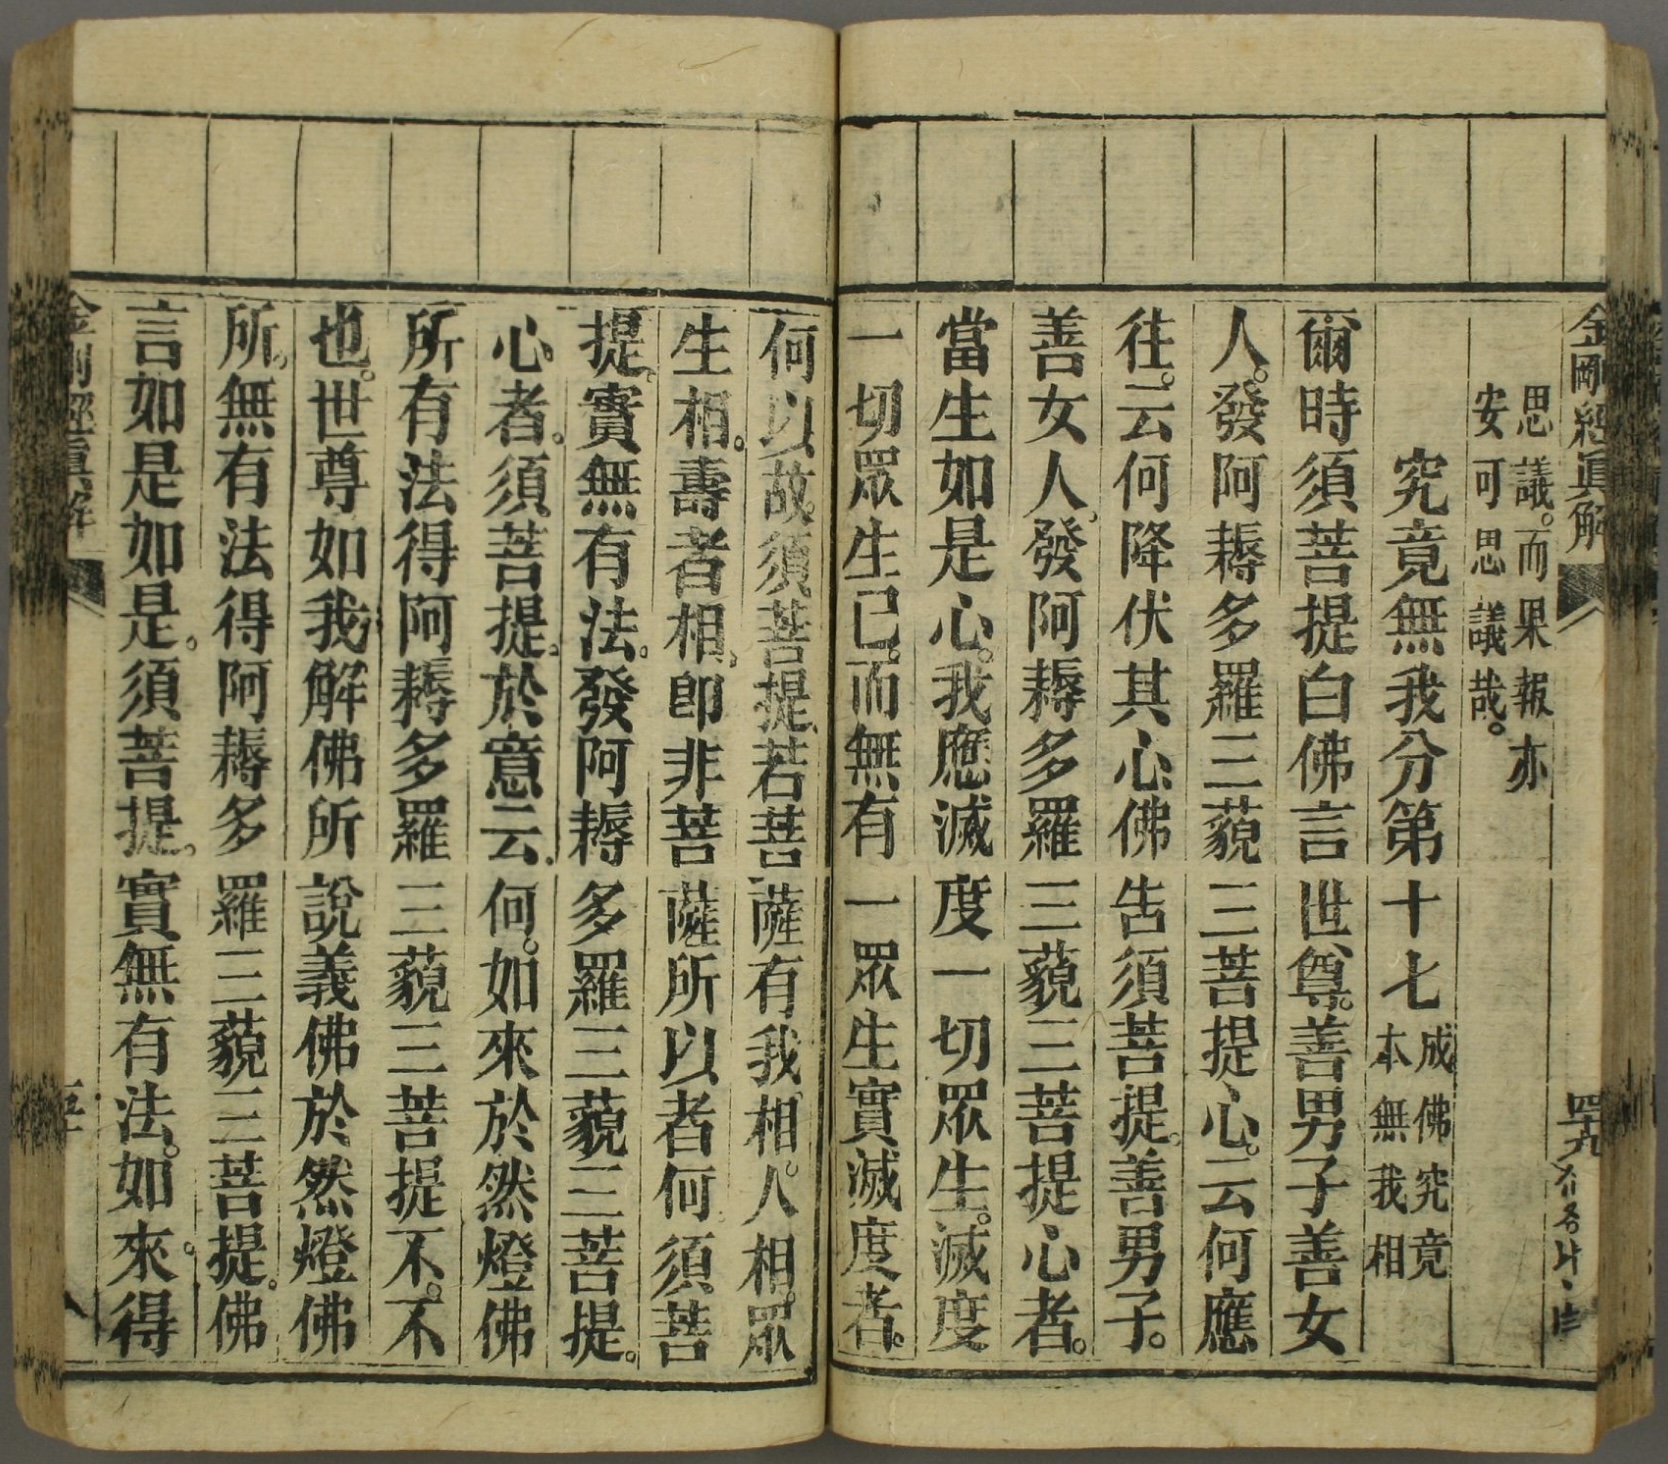 金剛經眞解
四九
思議。而果報亦
安可思議哉。
究竟無我分第十七
成佛究竟
本無我相
爾時須菩提白佛言世尊。善男子善女
人。發阿耨多羅三藐三菩提心。云何應
往。云何降伏其心佛告須菩提。善男子。
善女人。發阿耨多羅三藐三菩提心者。
當生如是心。我應滅度一切眾生。滅度
一切眾生已。而無有一眾生實滅度者。
何以故。須菩提。若菩薩有我相。人相。眾
生相。壽者相。卽非菩薩所以者何。須菩
提。實無有法。發阿耨多羅三藐三菩提。
心者。須菩提。於意云何。如來於然燈佛
所有法得阿耨多羅三藐三菩提不。不
也。世尊如我解佛所說義佛於然燈佛
所。無有法得阿耨多羅三藐三菩提。佛
言如是如是。須菩提。實無有法。如來。得
金剛經眞解